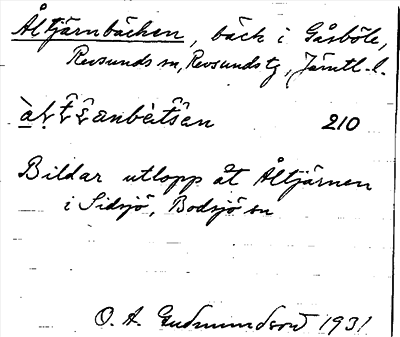 Åltjärnbäcken, bäck i Gåsböle,
Revsunds sn, Revsunds tg, Jämtl. l.
210
Bildar utlopp åt Åltjärnen
i Sidsjö, Bodsjö sn
O. A. Gudmundson 1931